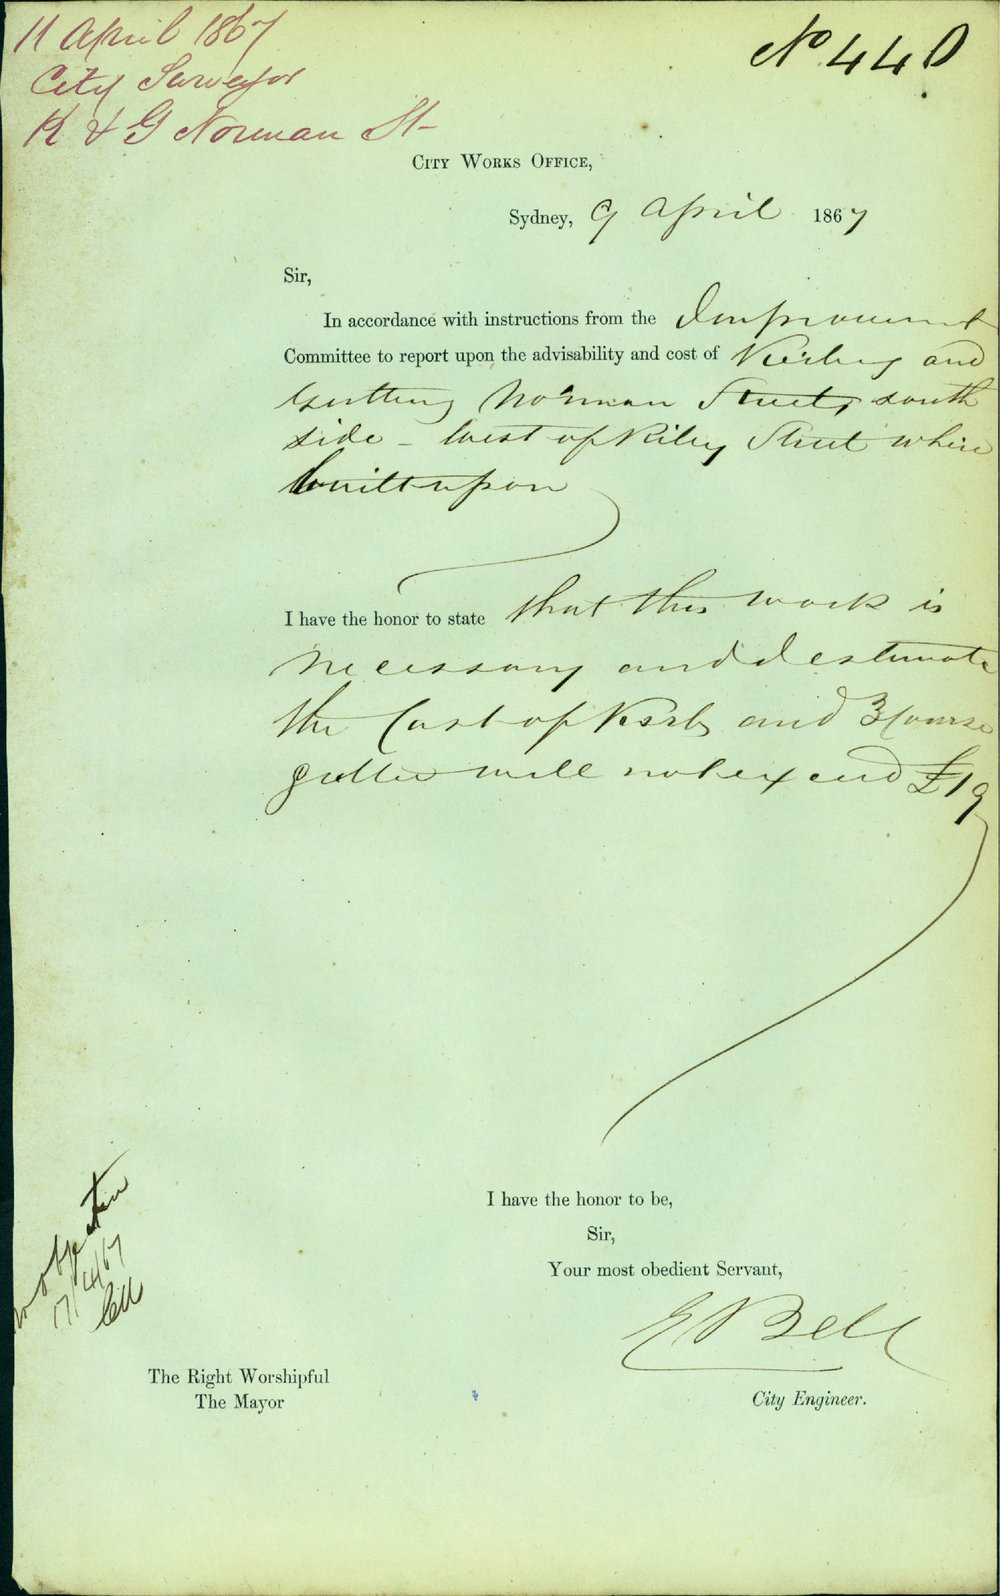 11 April 1867
City Surveyor
K & G Norman St
No 440
City Works Office,
Sydney, 9 April 1867
Sir,
In accordance with instructions from the Improvement
Committee to report upon the advisability and cost of Kerbing and
Guttering Norman Street, south
side - West of Riley Street where
built upon
I have the honor to state that this work is
necessary and I estimate
the Cost of Kerb and 3 Course
gutter will not exceed £19
I have the honor to be,
Sir,
Your most obedient Servant,
E Bell
City Engineer.
no objection
17/4/67
The Right Worshipful
The Mayor